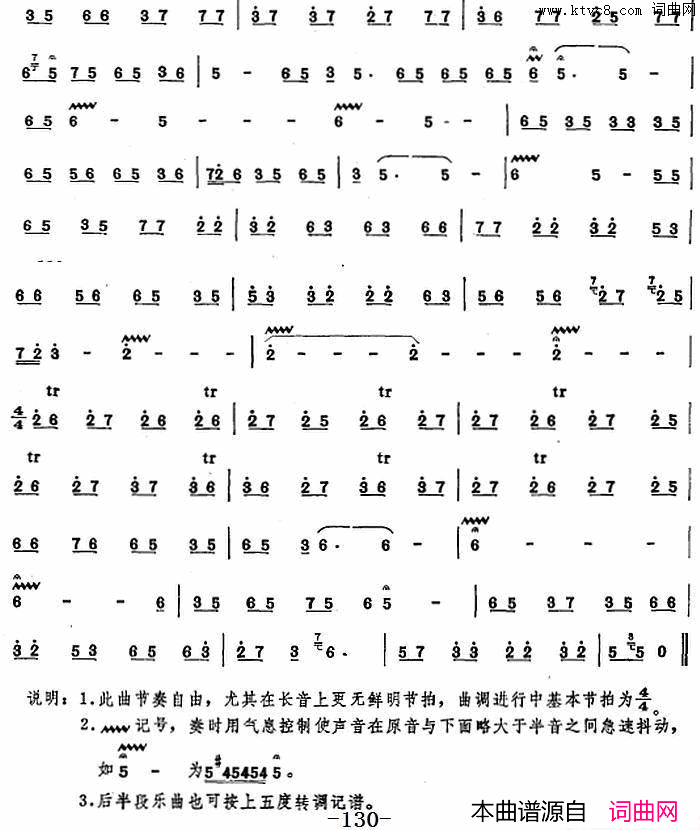 www.ktvc8.com 词曲网
35 66 37 77 | 37 37 27 77 | 36 77 25 77 |
6 7 5 75 65 36 | 5 - 65 3 5 · 65 65 65 6 5 · 5 - |
65 6 - 5 - - - 6 - 5 - - | 65 35 35 35 |
65 56 65 36 | 726 35 65 | 3 5 · 5 - | 6 5 - 55 |
65 35 77 22 | 32 63 63 66 | 77 22 32 53 |
66 56 65 35 | 53 32 22 63 | 56 56 7 27 7 25 |
723 - 2 - - - | 2 - - - 2 - - - 2 - - - |
tr tr tr
4/4 26 27 26 26 | 27 25 26 27 | 27 26 27 25 |
tr tr tr
26 27 37 36 | 36 27 36 36 | 27 26 27 25 |
66 76 65 35 | 65 3 6 · 6 - | 6 - - - |
6 - - 6 | 35 65 75 65 - | 65 37 35 66 |
32 53 65 63 | 27 3 7 6 · | 57 33 22 32 | 5 3 5 0 ‖
说明：1.此曲节奏自由，尤其在长音上更无鲜明节拍，曲调进行中基本节拍为4/4。
2.记号，奏时用气息控制使声音在原音与下面略大于半音之间急速抖动，
如 5 - 为 5#45454 5。
3.后半段乐曲也可按上五度转调记谱。
-130-
本曲谱源自 词曲网